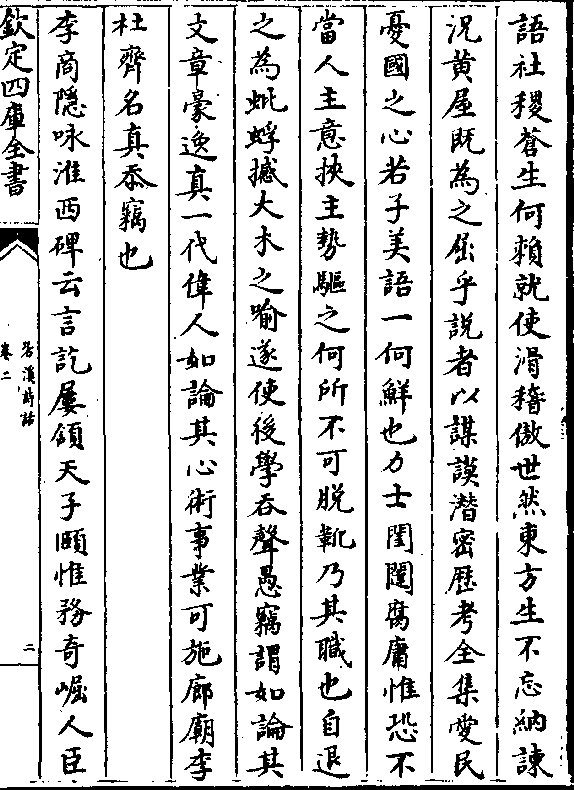 語社稷蒼生何賴就使滑稽傲世然東方生不忘納諫
況黄屋既為之屈乎説者以謀謨潛密歴考全集愛民
憂國之心若子美語一何鮮也力士閨闥腐庸惟恐不
當人主意挾主勢驅之何所不可脱靴乃其職也自退
之為蚍蜉撼大木之喻遂使後學吞聲愚竊謂如論其
文章豪逸真一代偉人如論其心術事業可施廊廟李
杜齊名真忝竊也
李商隠咏淮西碑云言訖屢頷天子頤惟務奇崛人臣
欽定四庫全書
卷二
二